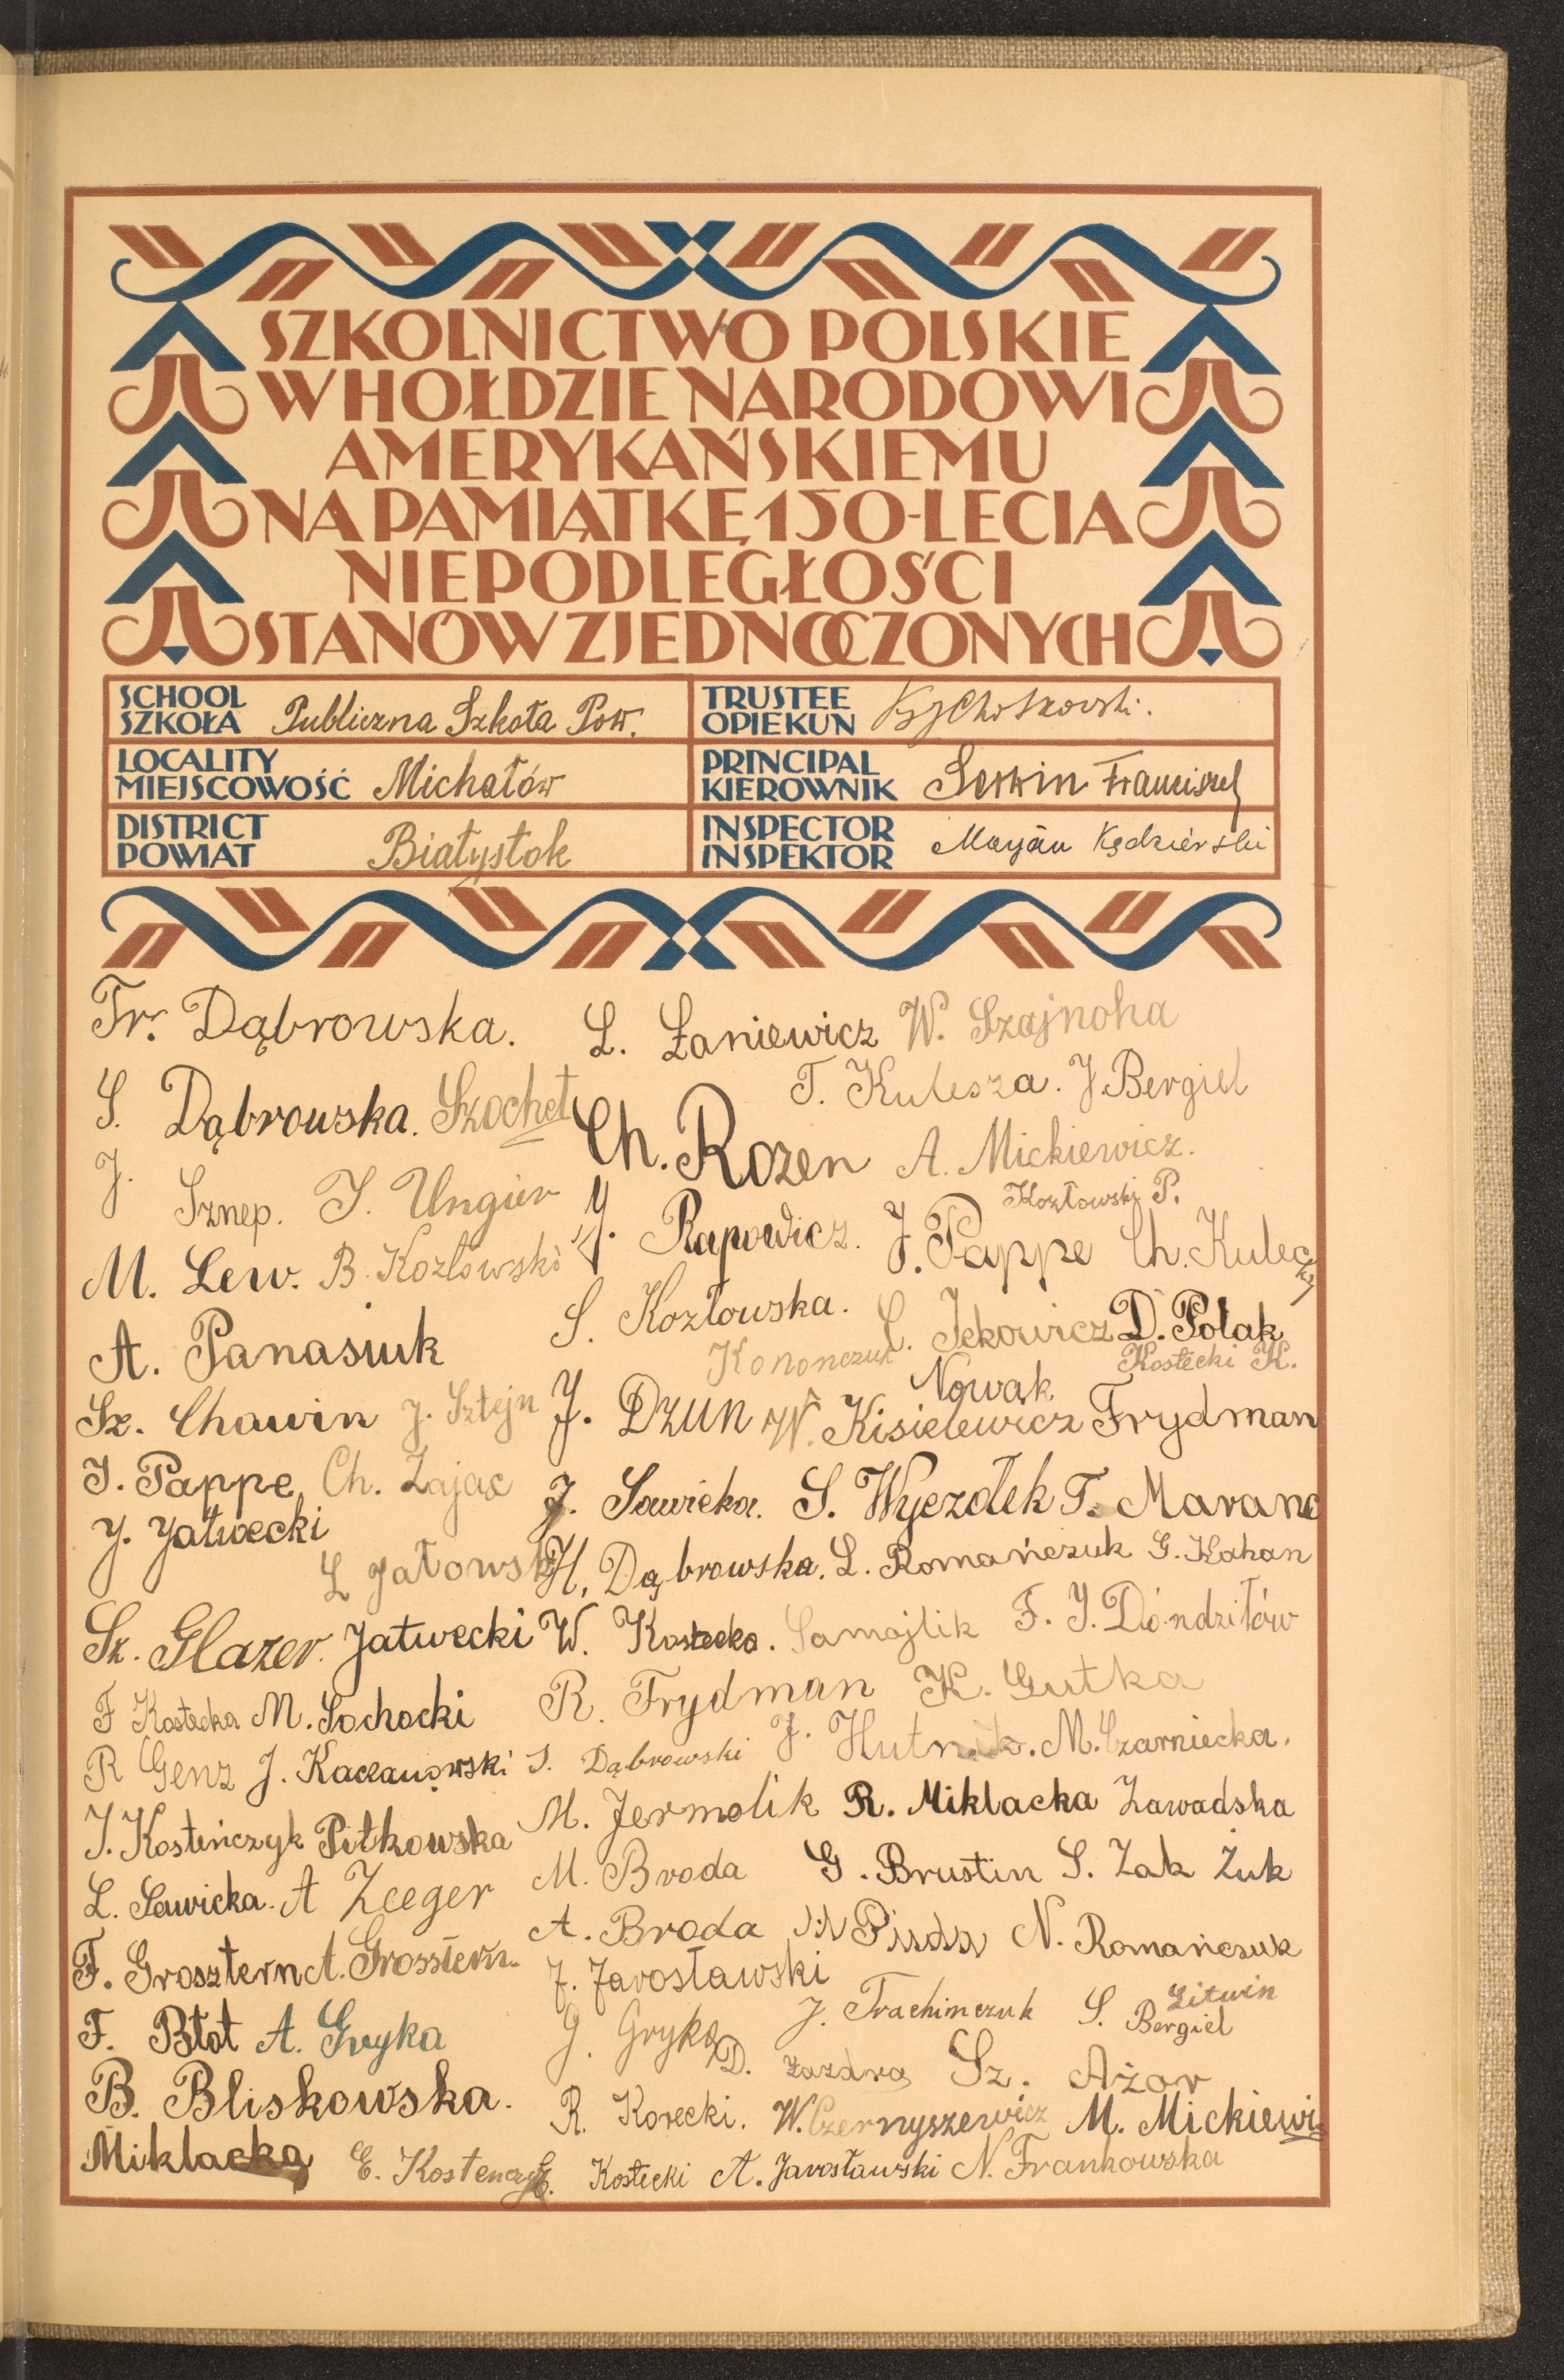 SZKOLNICTWO POLSKIE
W HOŁDZIE NARODOWI
AMERYKAŃSKIEMU
NA PAMIĄTKĘ 150-LECIA
NIEPODLEGŁOŚCI
STANÓW ZJEDNOCZONYCH
SCHOOL
SZKOŁA Publiczna Szkoła Pow.
TRUSTEE
OPIEKUN
LOCALITY
MIEJSCOWOŚĆ Michałów
PRINCIPAL
KIEROWNIK Franciszek
DISTRICT
POWIAT Białystok
INSPECTOR
INSPEKTOR Maryan Kędzierski
Fr. Dąbrowska. L. Łaniewicz W. Szajnoha
S. Dąbrowska. Szochet T. Kulesza. J. Bergiel
Ch. Rozen A. Mickiewicz.
J. Sznep. I. Ungier Kozłowski P.
M. Lew. B. Kozłowski J. Rapowicz. J. Pappe Ch. Kulecki
A. Panasiuk S. Kozłowska. C. Jekowicz D. Polak
Kononczuk Kostecki K.
Nowak
Sz. Chawin J. Sztejn J. Dzun W. Kisielewicz Frydman
I. Pappe Ch. Zając J. Sawicka. S. Wyezdłek T. Maranc
J. Jatwecki
L Jatowski H. Dąbrowska. L. Romańczuk G. Kahan
Sz. Glazer. Jatwecki W. Kostecka. Samojlik F. J. Dóndziłów
F Kostecka M. Sochocki R. Frydman K. Gutka
R Genz J. Kaczanowski S. Dąbrowski J. Hutnik. M. Czarniecka.
J. Kosteńczyk Pitkowska M. Jermolik R. Miklacka Zawadska
L. Sawicka. A Zeeger M. Broda G. Brustin S. Zak Żuk
F. Grosztern A. Grossztern A. Broda N. Romańczuk
J. Jarosławski
F. Błot A. Gryka J. Gryka J. Trachimczuk S. Bergiel
Litwin
D. Zazdra Sz. Ażar
B. Bliskowska. R. Korecki. W. Czernyszewicz M. Mickiewi
Miklacka E. Kostenczyk E. Kostecki A. Jarosławski N. Frankowska